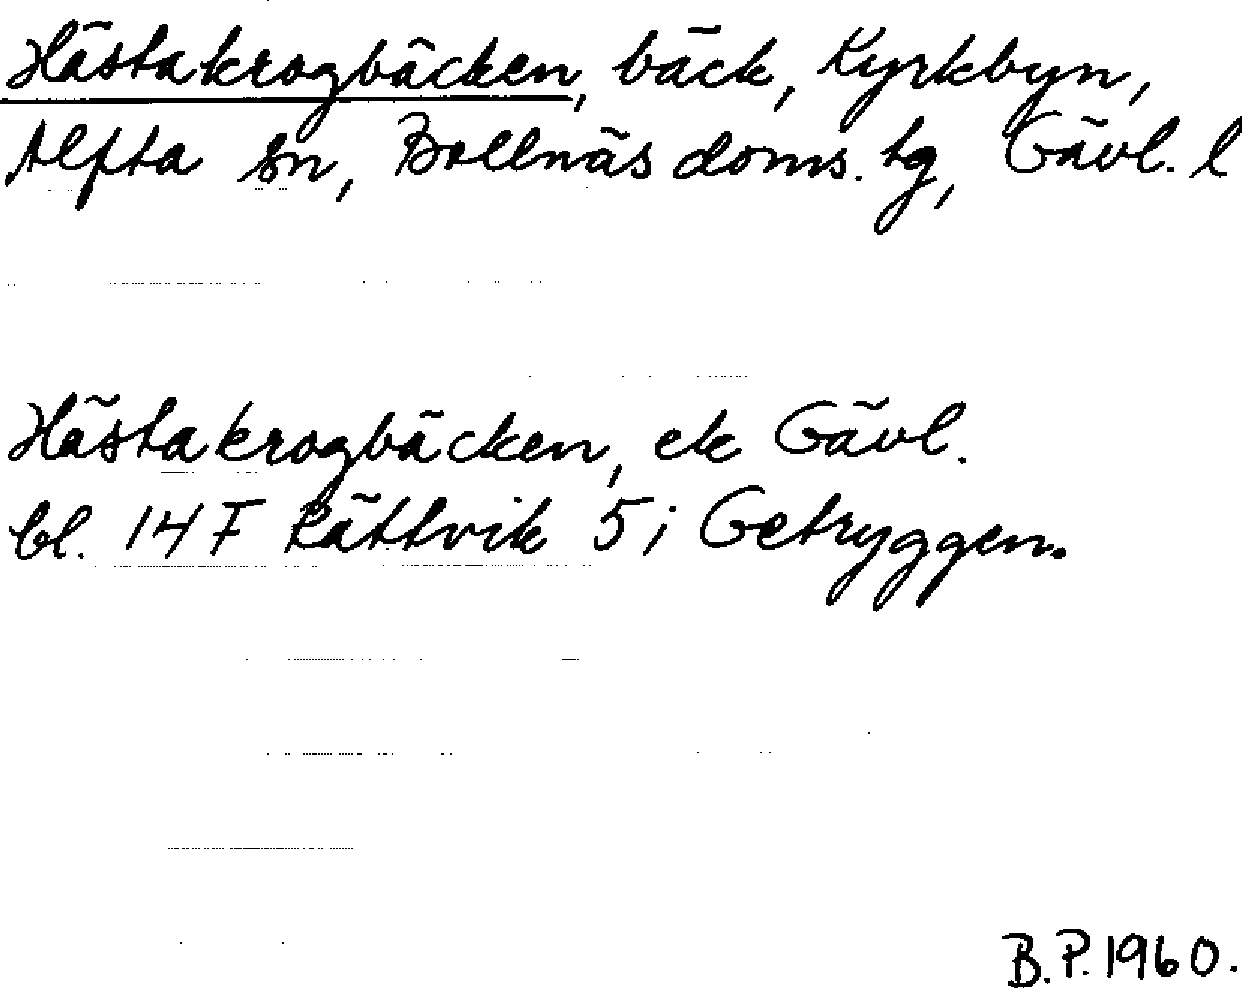 Hästakrogbäcken, bäck, Kyrkbyn,
Alfta sn, Bollnäs doms. tg, Gävl. l
Hästakrogbäcken, ek Gävl.
bl. 14 F Rättvik 5 i Getryggen.
B.P. 1960.